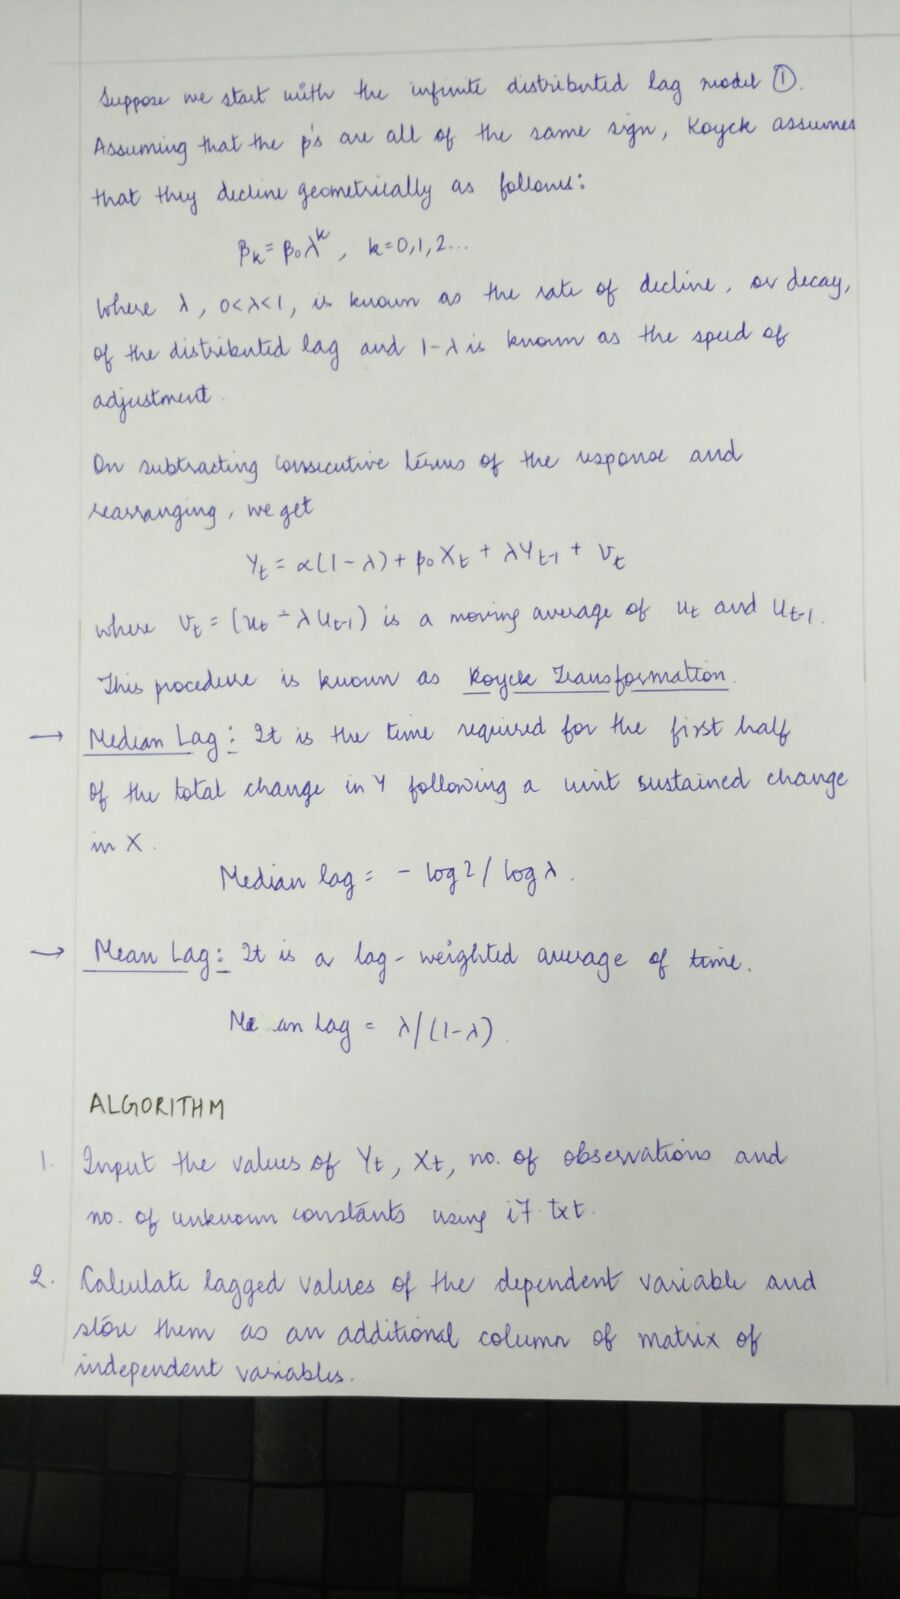 Suppose we start with the infinite distributed lag model ①.
Assuming that the β's are all of the same sign, Koyck assumes
that they decline geometrically as follows:
βₖ = β₀λᵏ, k=0,1,2...
Where λ, 0<λ<1, is known as the rate of decline, or decay,
of the distributed lag and 1-λ is known as the speed of
adjustment.
On subtracting consecutive terms of the response and
rearranging, we get
Yₜ = α(1-λ) + β₀Xₜ + λYₜ₋₁ + Vₜ
where Vₜ = (uₜ - λuₜ₋₁) is a moving average of uₜ and uₜ₋₁.
This procedure is known as Koyck Transformation.
→ Median Lag: It is the time required for the first half
of the total change in Y following a unit sustained change
in X.
Median lag = - log2/logλ.
→ Mean Lag: It is a lag-weighted average of time.
Mean Lag = λ/(1-λ).
ALGORITHM
1. Input the values of Yₜ, Xₜ, no. of observations and
no. of unknown constants using i7.txt.
2. Calculate lagged values of the dependent variable and
store them as an additional column of matrix of
independent variables.